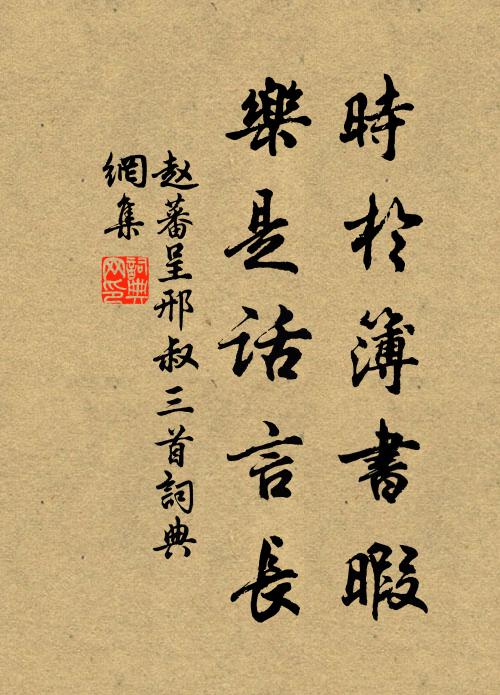 時於簿書暇
樂是話言長
赵蕃呈邢叔三首詞典
網集
詞典
网印